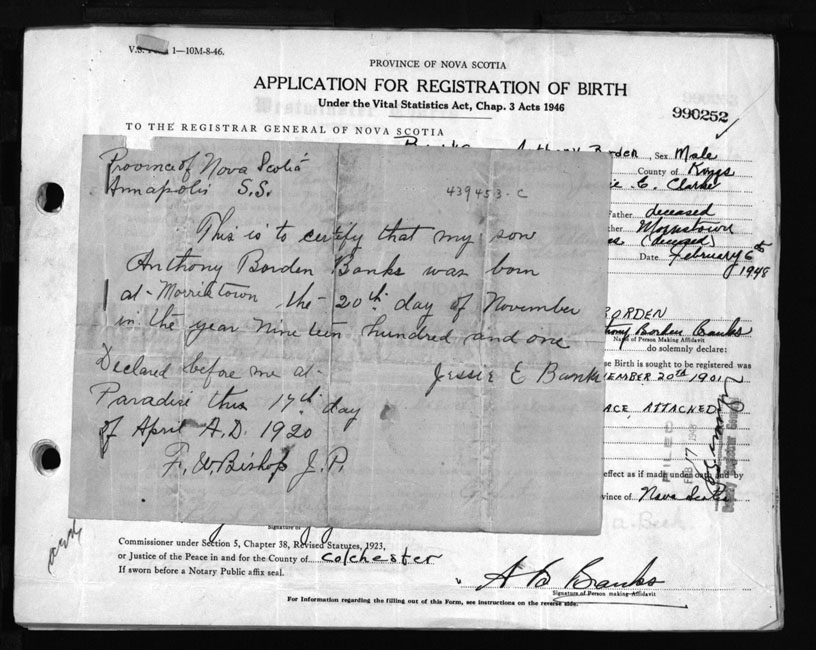 1—10M-8-46.
PROVINCE OF NOVA SCOTIA
APPLICATION FOR REGISTRATION OF BIRTH
Under the Vital Statistics Act, Chap. 3 Acts 1946
990252
TO THE REGISTRAR GENERAL OF NOVA SCOTIA
Anthony Borden Sex Male
County of Kings
C. Clarke
Father deceased
Morristown
(deceased)
Date February 6th
1948
BORDEN
Borden Banks
Name of Person Making Affidavit
do solemnly declare:
se Birth is sought to be registered was
EMBER 20th 1901
ACE ATTACHED
FILED
FEB 17 1948
effect as if made under oath and by
vince of Nova Scotia
Province of Nova Scotia
Annapolis S.S.
439453-C
This is to certify that my son
Anthony Borden Banks was born
at Morristown the 20th day of November
in the year nineteen hundred and one
Declared before me at
Jessie E Banks
Paradise this 17th day
of April A.D. 1920
F. W. Bishop J.P.
Signature of
Commissioner under Section 5, Chapter 38, Revised Statutes, 1923,
or Justice of the Peace in and for the County of Colchester
If sworn before a Notary Public affix seal.
A B Banks
Signature of Person making Affidavit
For Information regarding the filling out of this Form, see instructions on the reverse side.